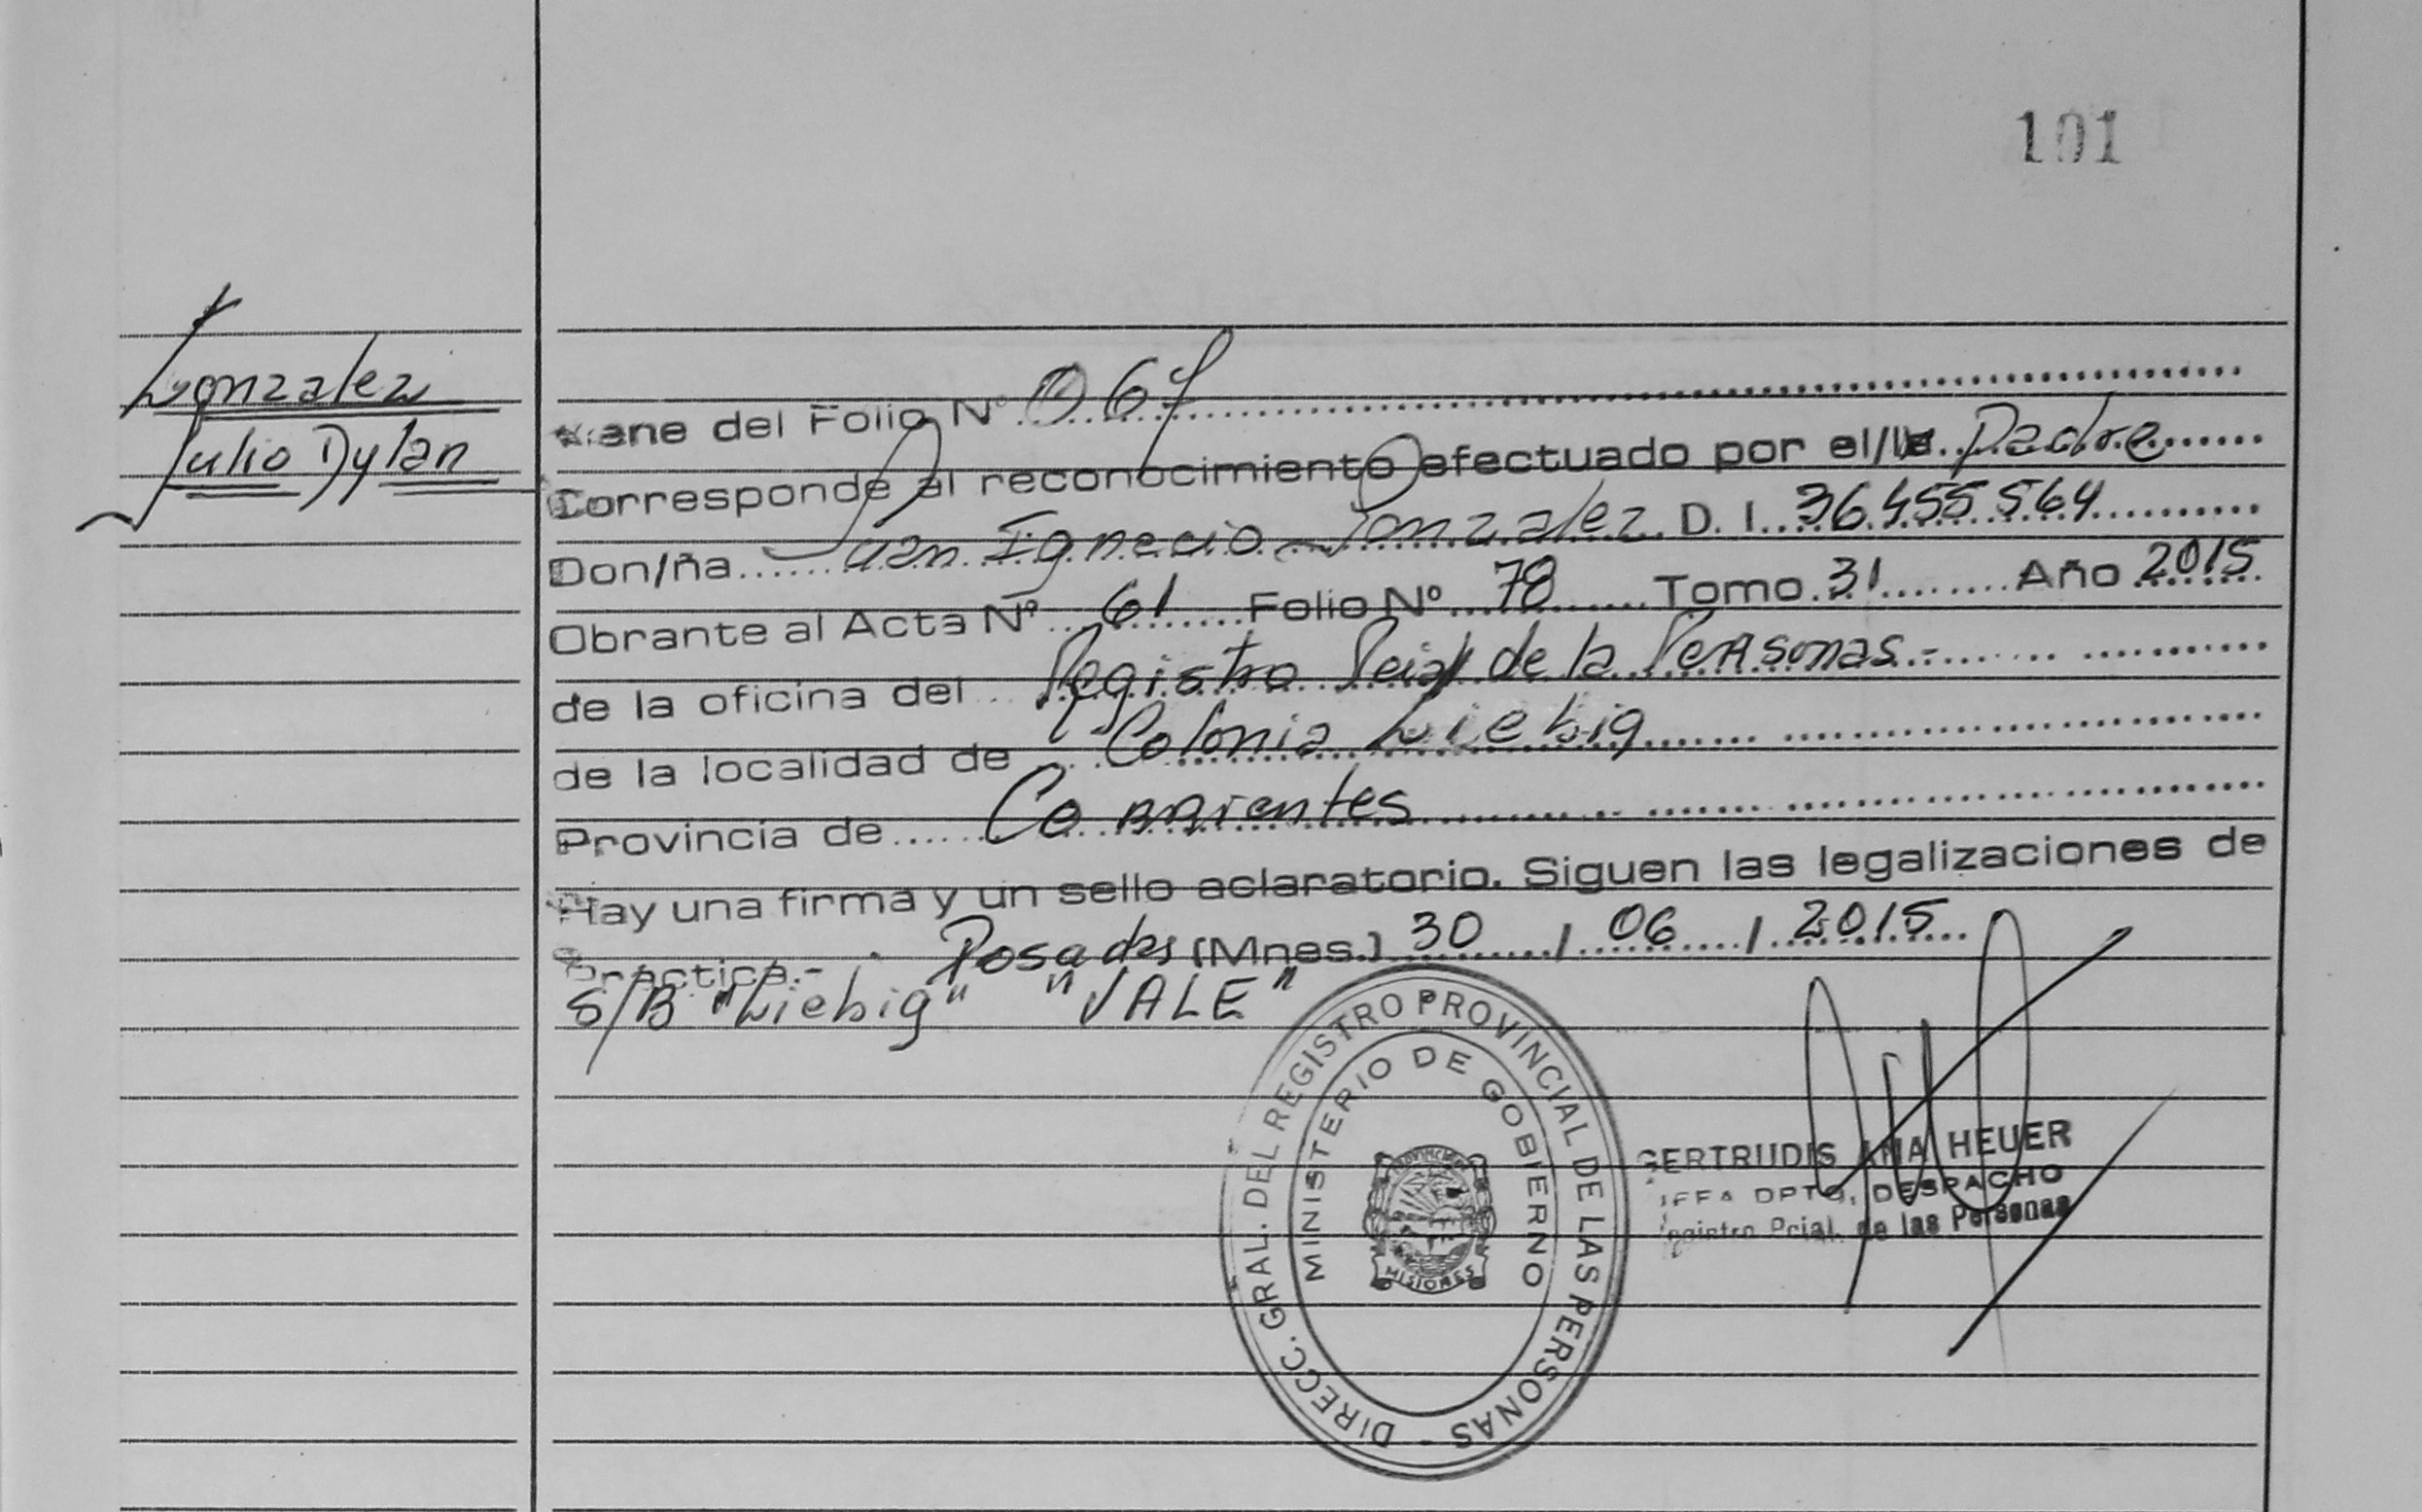 101
Gonzalez
Julio Dylan
Viene del Folio Nº 067
Corresponde al reconocimiento efectuado por el/la Padre
Don/ña Juan Ignacio Gonzalez D. I. 36.455.564
Obrante al Acta Nº 61 Folio Nº 78 Tomo 31 Año 2015
de la oficina del Registro Pcial de la Personas.-
de la localidad de Colonia Liebig
Provincia de Corrientes
Hay una firma y un sello aclaratorio. Siguen las legalizaciones de
Práctica.- Posadas (Mnes.) 30 / 06 / 2015
S/B "Liebig" "VALE"
DIRECC. GRAL. DEL REGISTRO PROVINCIAL DE LAS PERSONAS -
MINISTERIO DE GOBIERNO
MISIONES
GERTRUDIS ANA HEUER
JEFA DPTO. DESPACHO
Registro Pcial. de las Personas